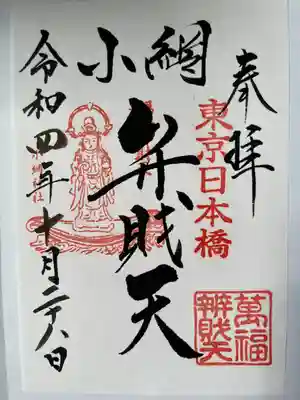 奉拝
東京日本橋
小網
弁財天
令和四年十月二十八日
萬福
辨財天